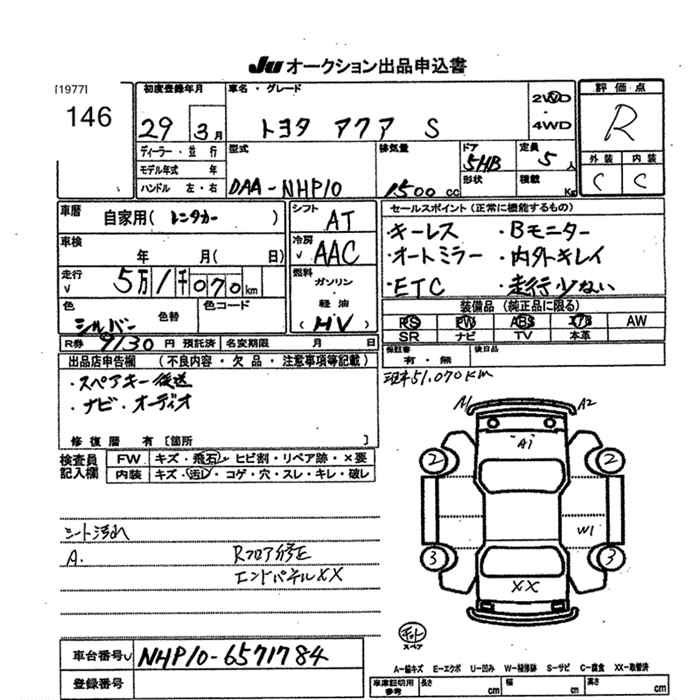 JU オークション出品申込書
[1977]
146
初度登録年月 車名・グレード
29 3月 トヨタ アクア S
2WD
・
4WD
評価点
R
外装 内装
C C
ディーラー・並行
モデル年式 年
ハンドル 左・右
型式 DAA-NHP10
排気量 1500cc
ドア 5HB
形状
定員 5人
積載 Kg
車歴 自家用(レンタカー)
車検 年 月(日)
走行 5万1千070km
色 シルバー 色替
色コード
R券 9130円 預託済 名変期限 月 日
シフト AT
冷房 AAC
燃料
ガソリン
・
軽油
(HV)
セールスポイント(正常に機能するもの)
・キーレス ・Bモニター
・オートミラー ・内外キレイ
・ETC ・走行少ない
装備品(純正品に限る)
PS PW ABS エアB AW
SR ナビ TV 本革
保証書 有・無 後日品
現キ51,070km
出品店申告欄 (不良内容・欠品・注意事項等記載)
・スペアキー後送
・ナビ・オーディオ
修復歴 有[箇所 ]
検査員記入欄
FW キズ・飛石・ヒビ割・リペア跡・×要
内装 キズ・汚レ・コゲ・穴・スレ・キレ・破レ
シート汚れ
A. Rフロア修正
エンドパネルXX
A2
A1
2 2
W1
3 3
XX
スペア
車台番号 NHP10-6571784
登録番号
A-線キズ E-エクボ U-凹み W-補修跡 S-サビ C-腐食 XX-取替済
車庫証明用参考 長さ cm 幅 cm 高さ cm